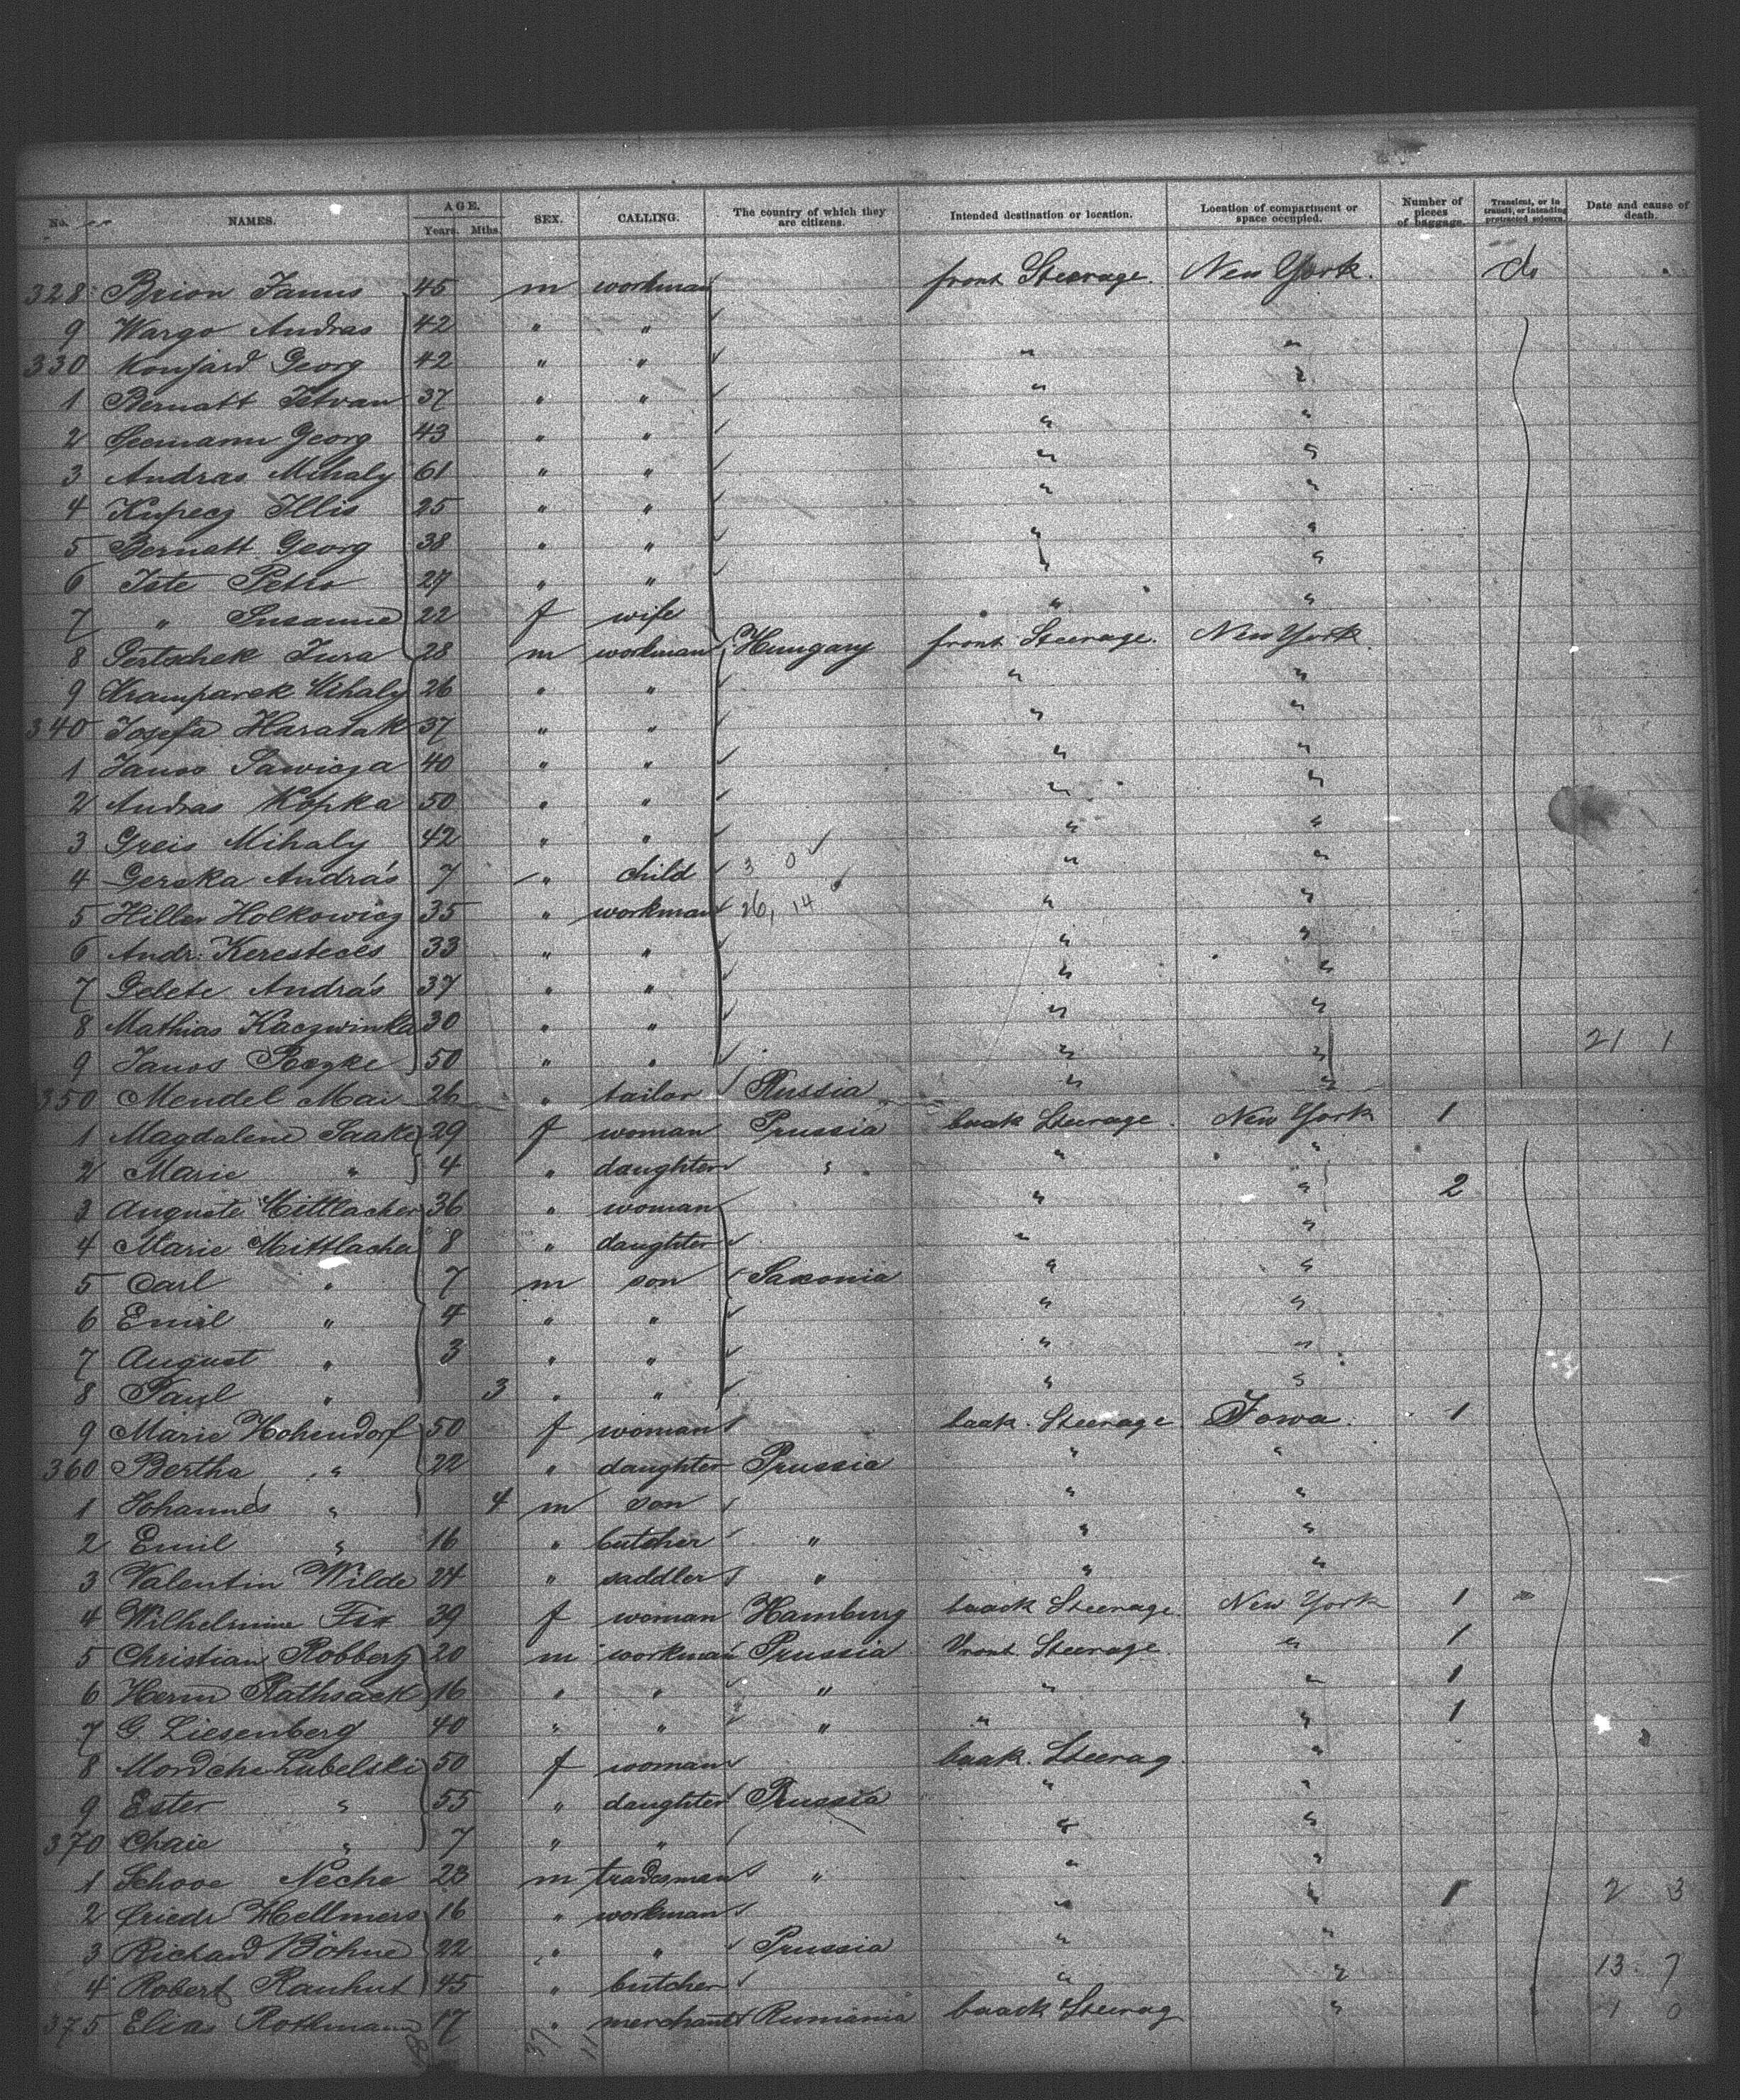 No. NAMES. AGE. Years. Mths. SEX. CALLING. The country of which they are citizens. Intended destination or location. Location of compartment or space occupied. Number of pieces of baggage. Transient, or in transit, or intending protracted sojourn. Date and cause of death.
328 Brion Janus 45 m workman front Steerage. New York. do
9 Wargo Andras 42 " "
330 Konjard Georg 42 " " " "
1 Bernatt Istvan 37 " " " "
2 Seemann Georg 43 " " " "
3 Andras Mihaly 61 " " " "
4 Kupecz Illis 25 " " " "
5 Bernatt Georg 38 " " " "
6 Iste Petro 27 " " " "
7 " Susanne 22 f wife " "
8 Pertschek Jura 28 m workman Hungary front Steerage. New York.
9 Kramparek Mihaly 26 " " " "
340 Josefa Haratak 37 " " " "
1 Janos Sawicza 40 " " " "
2 Andras Kopka 50 " " " "
3 Greis Mihaly 42 " " " "
4 Gerska András 7 " child 3 0 " "
5 Hiller Holkowicz 35 " workman 26, 14 " "
6 Andr. Keresteces 33 " " " "
7 Gelete András 37 " " " "
8 Mathias Kaczwinka 30 " " " " 21 1
9 Janos Rezke 50 " " " "
350 Mendel Mai 26 " tailor Russia " "
1 Magdalene Saake 29 f woman Prussia baak Steerage. New York 1
2 Marie " 4 " daughter " " "
3 Auguste Mittlacher 36 " woman " " 2
4 Marie Mittlacher 8 " daughter " "
5 Carl " 7 m son Saxonia " "
6 Emil " 4 " " " "
7 August " 3 " " " "
8 Paul " 3 " " " "
9 Marie Hohendorf 50 f woman baak. Steerage Iowa. 1
360 Bertha " 22 " daughter Prussia " "
1 Johannes " 4 m son " "
2 Emil " 16 " butcher " " "
3 Valentin Wilde 24 " saddler " " "
4 Wilhelmine Fix 39 f woman Hamburg baack Steerage. New York 1
5 Christian Robberg 20 m workman Prussia Vront Steerage. " 1
6 Herm Rathsack 16 " " " " " 1
7 G. Liesenberg 40 " " " " " 1
8 Mordche Lubelski 50 f woman baak. Steerag. "
9 Ester " 55 " daughter Russia " "
370 Chaie " 7 " " " "
1 Schooe Neche 23 m tradesman " " "
2 Friedr Hellmers 16 " workman " " 1 2 3
3 Richard Böhne 22 " " Prussia " "
4 Robert Rauhut 45 " butcher " " 13. 7
375 Elias Rothmann 17 " merchant Rumänia baack Steerag " 1 0
37 11